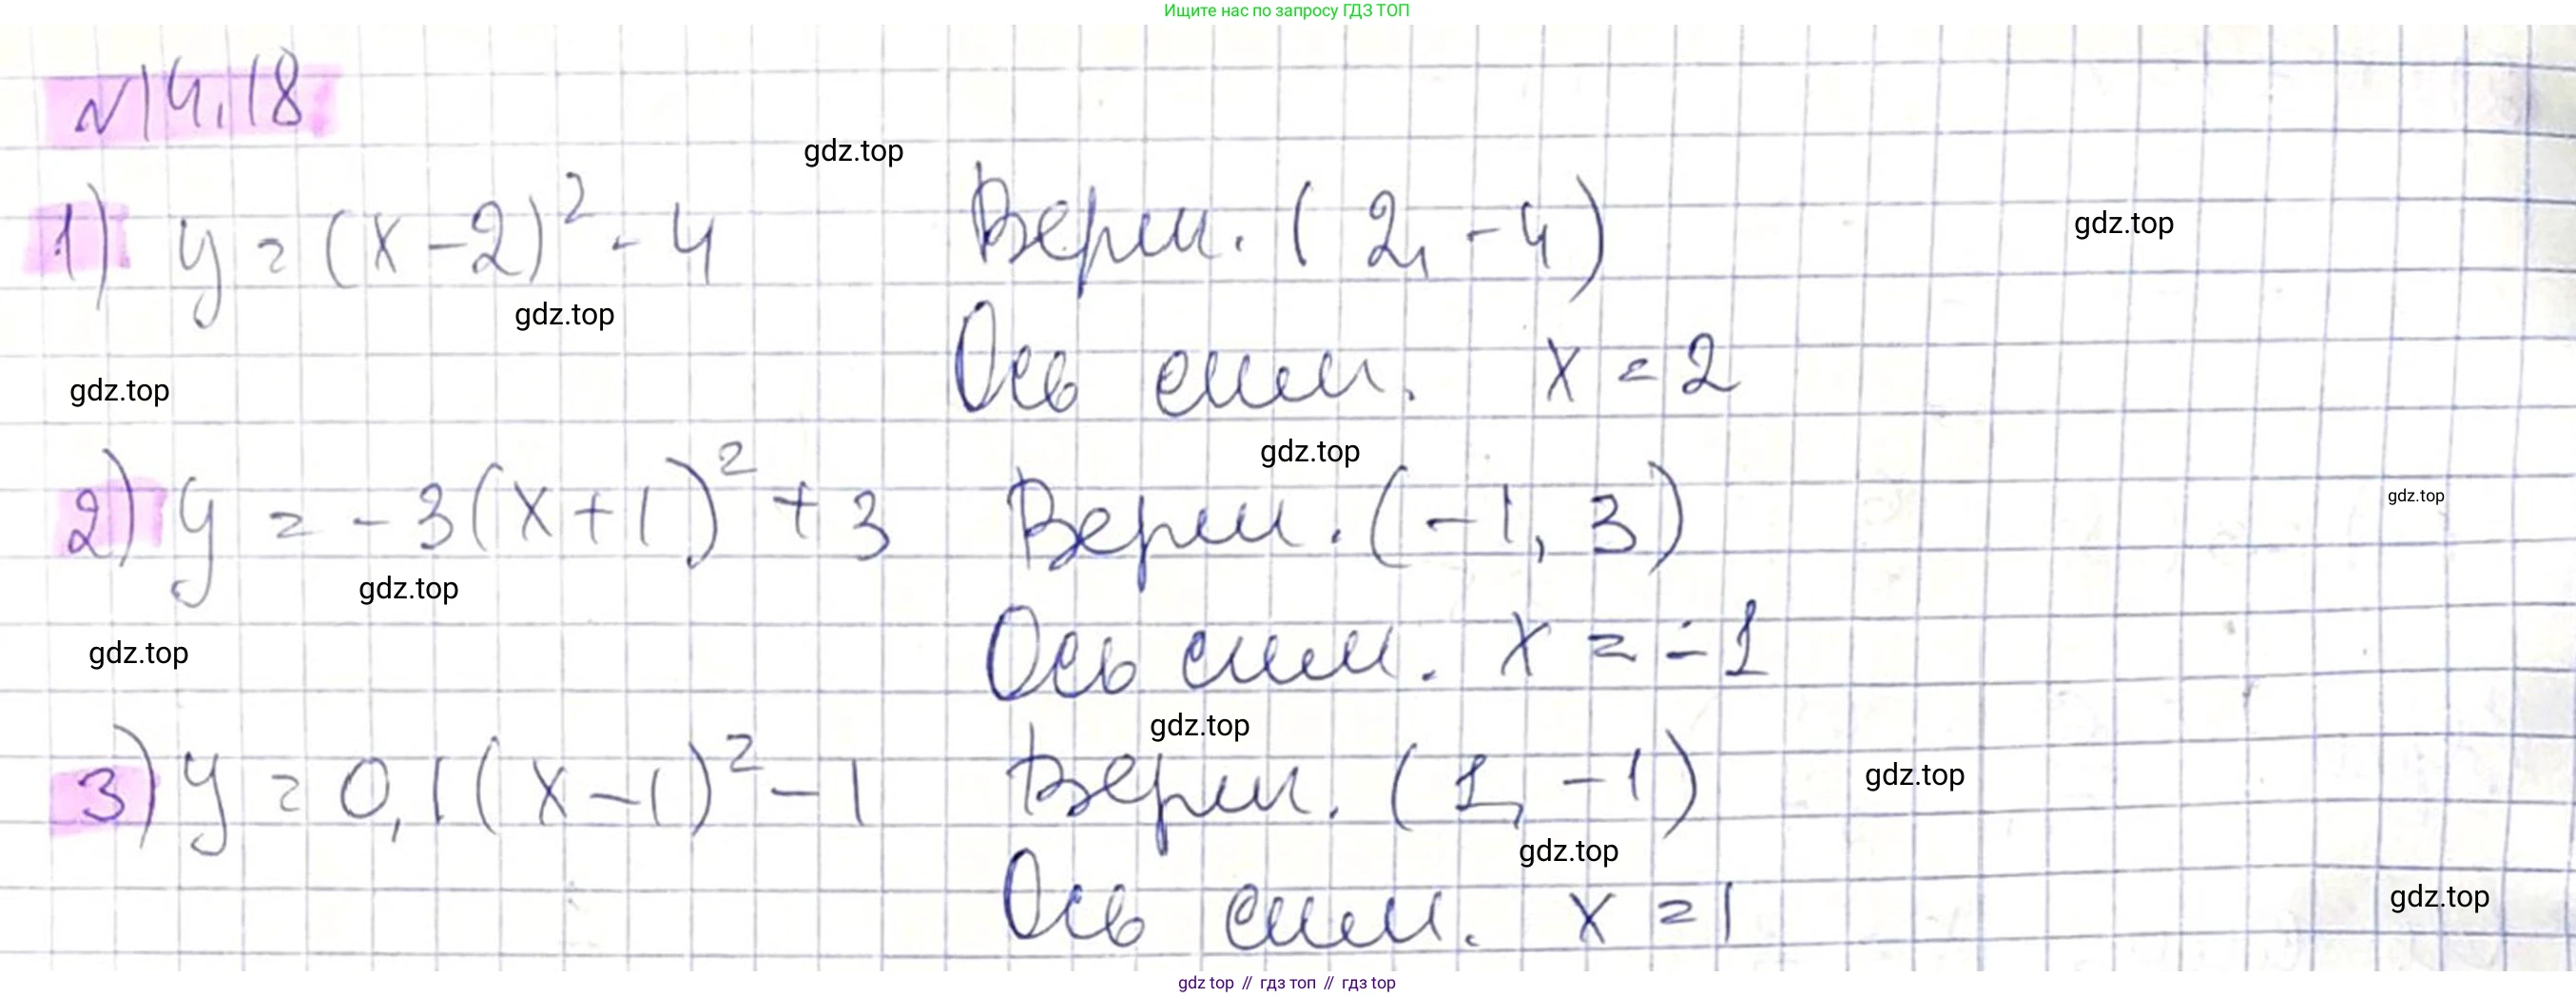 Ищите нас по запросу ГДЗ ТОП
№14.18
gdz.top
1) y = (x-2)² - 4 Верш. (2, -4)
gdz.top
gdz.top
Ось симм. x = 2
gdz.top
gdz.top
2) y = -3(x+1)² + 3 Верш. (-1, 3)
gdz.top
gdz.top
Ось симм. x = -1
gdz.top
gdz.top
3) y = 0,1(x-1)² - 1 Верш. (1, -1)
gdz.top
gdz.top
Ось симм. x = 1
gdz.top
gdz top // гдз топ // гдз top